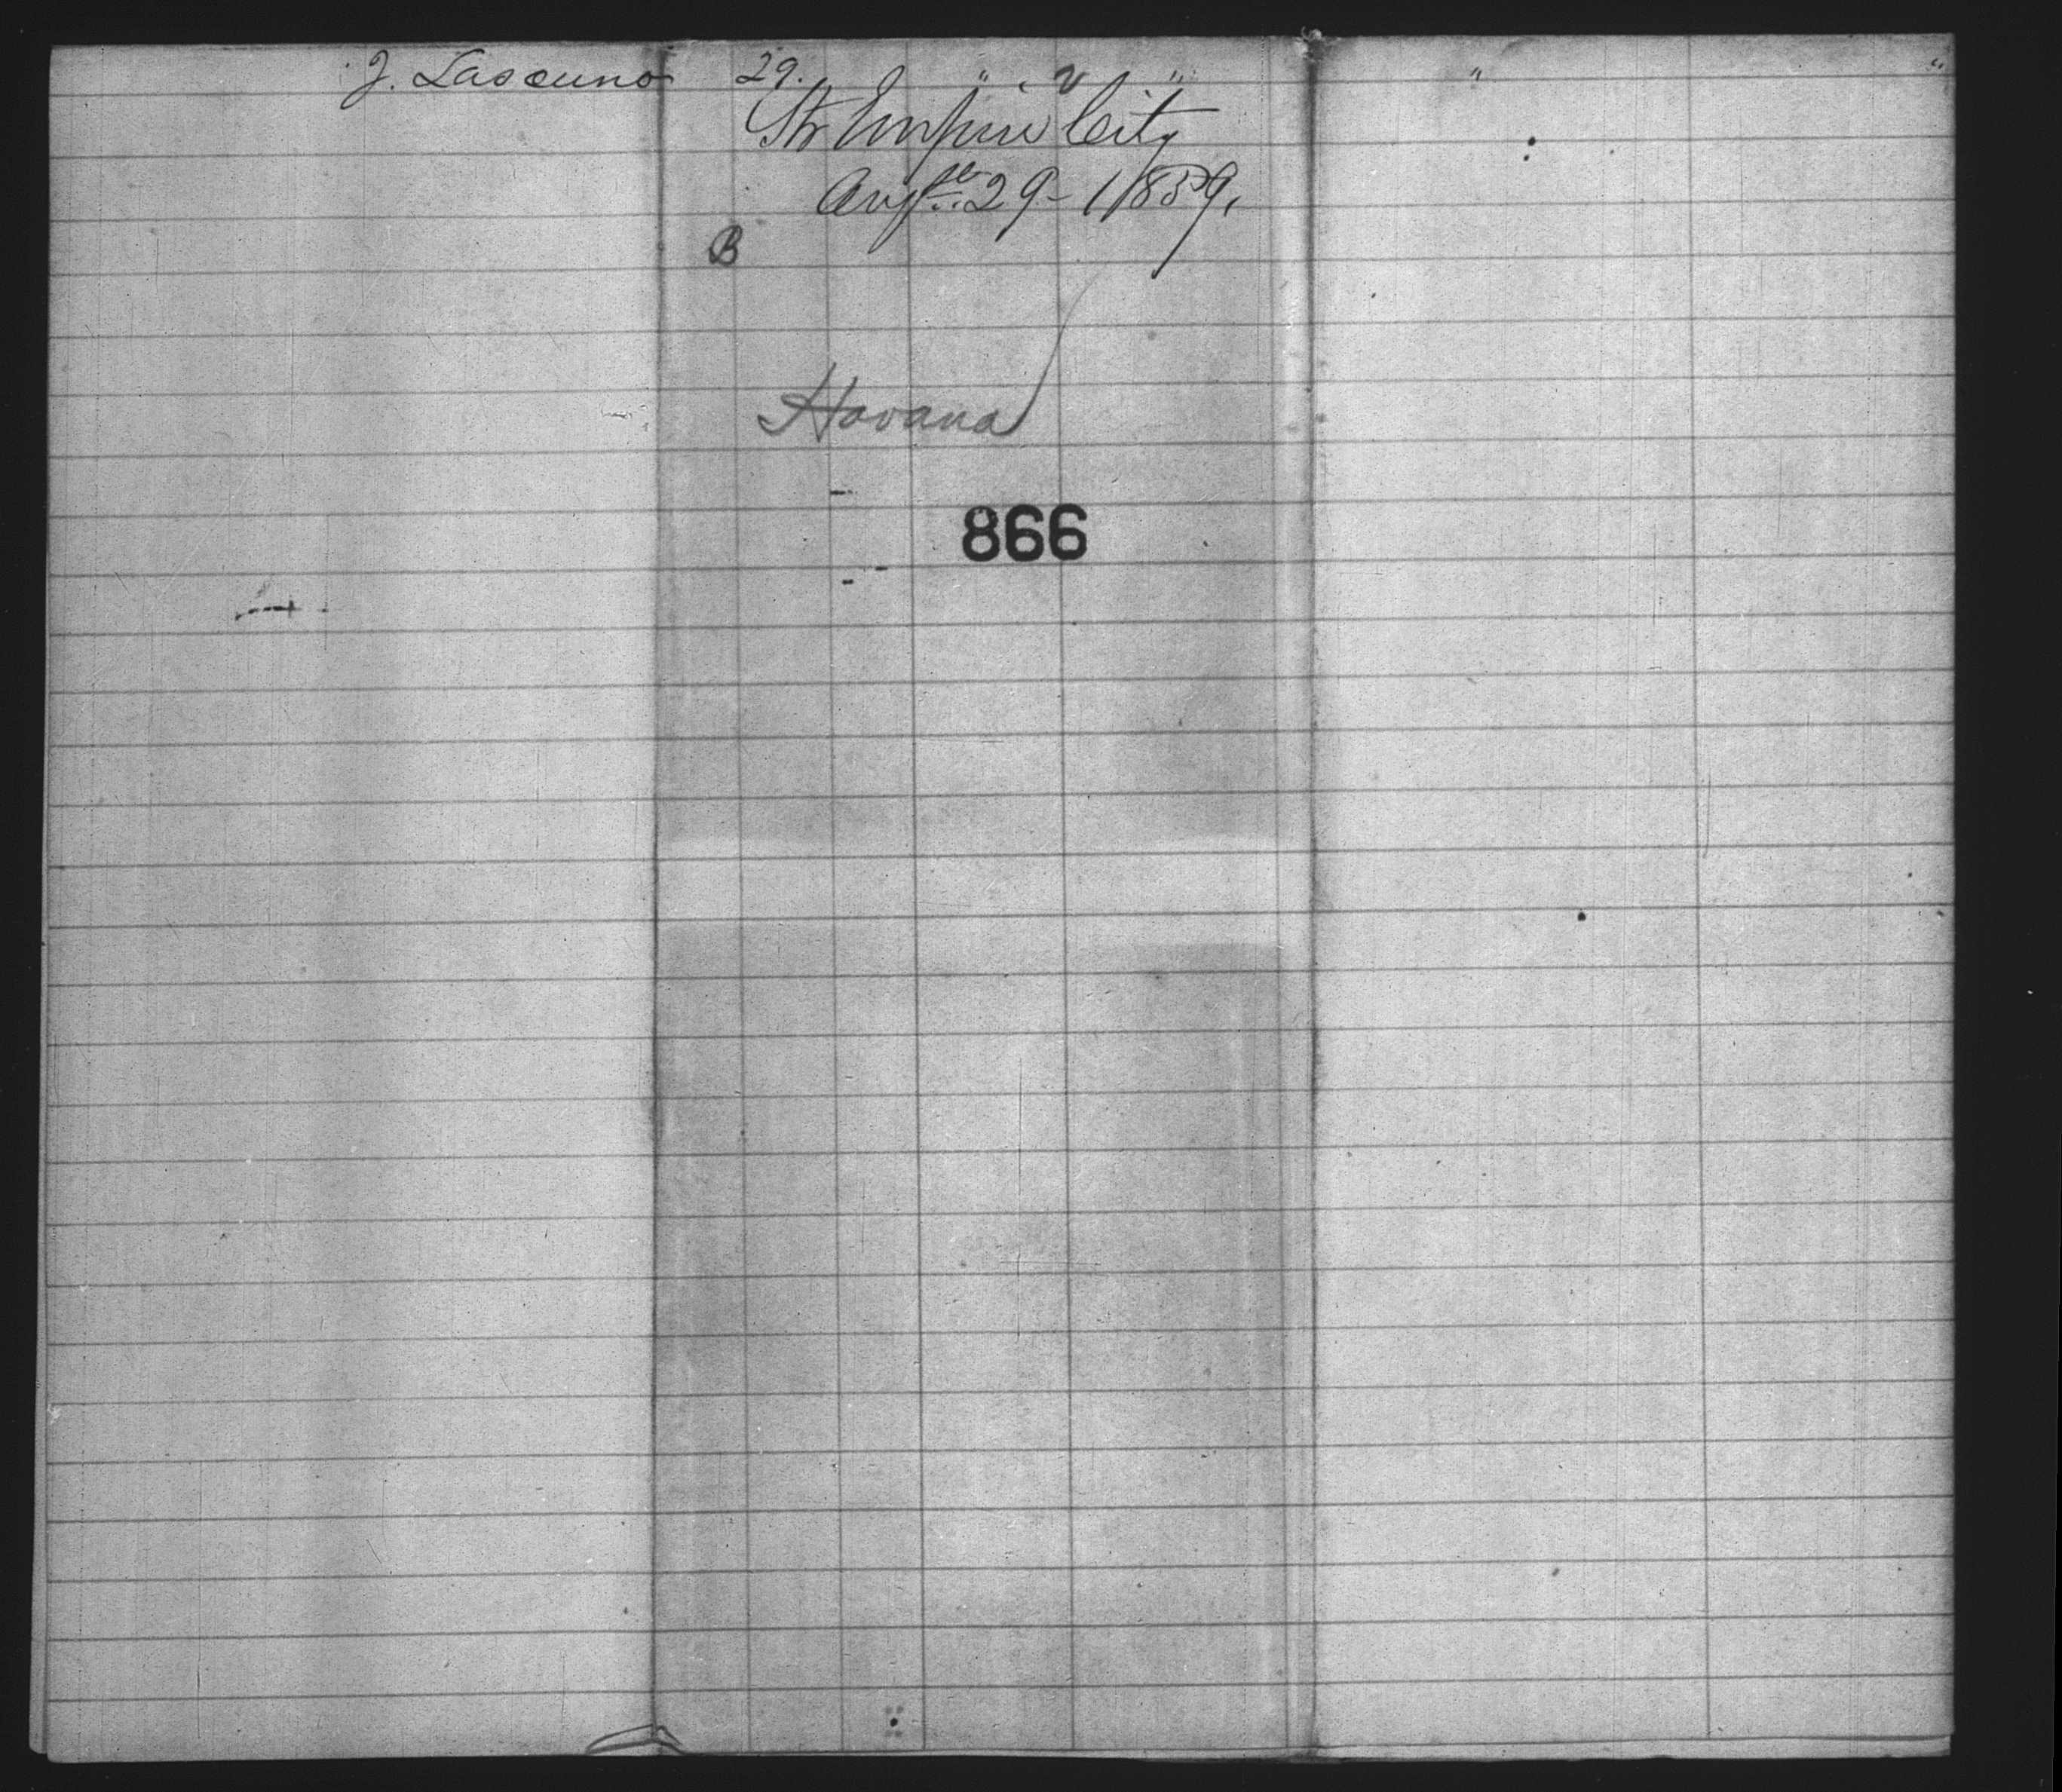 J. Lascuno 29. " " " " "
Str Empire City
Augst 29 - 1859,
B
Havana
866